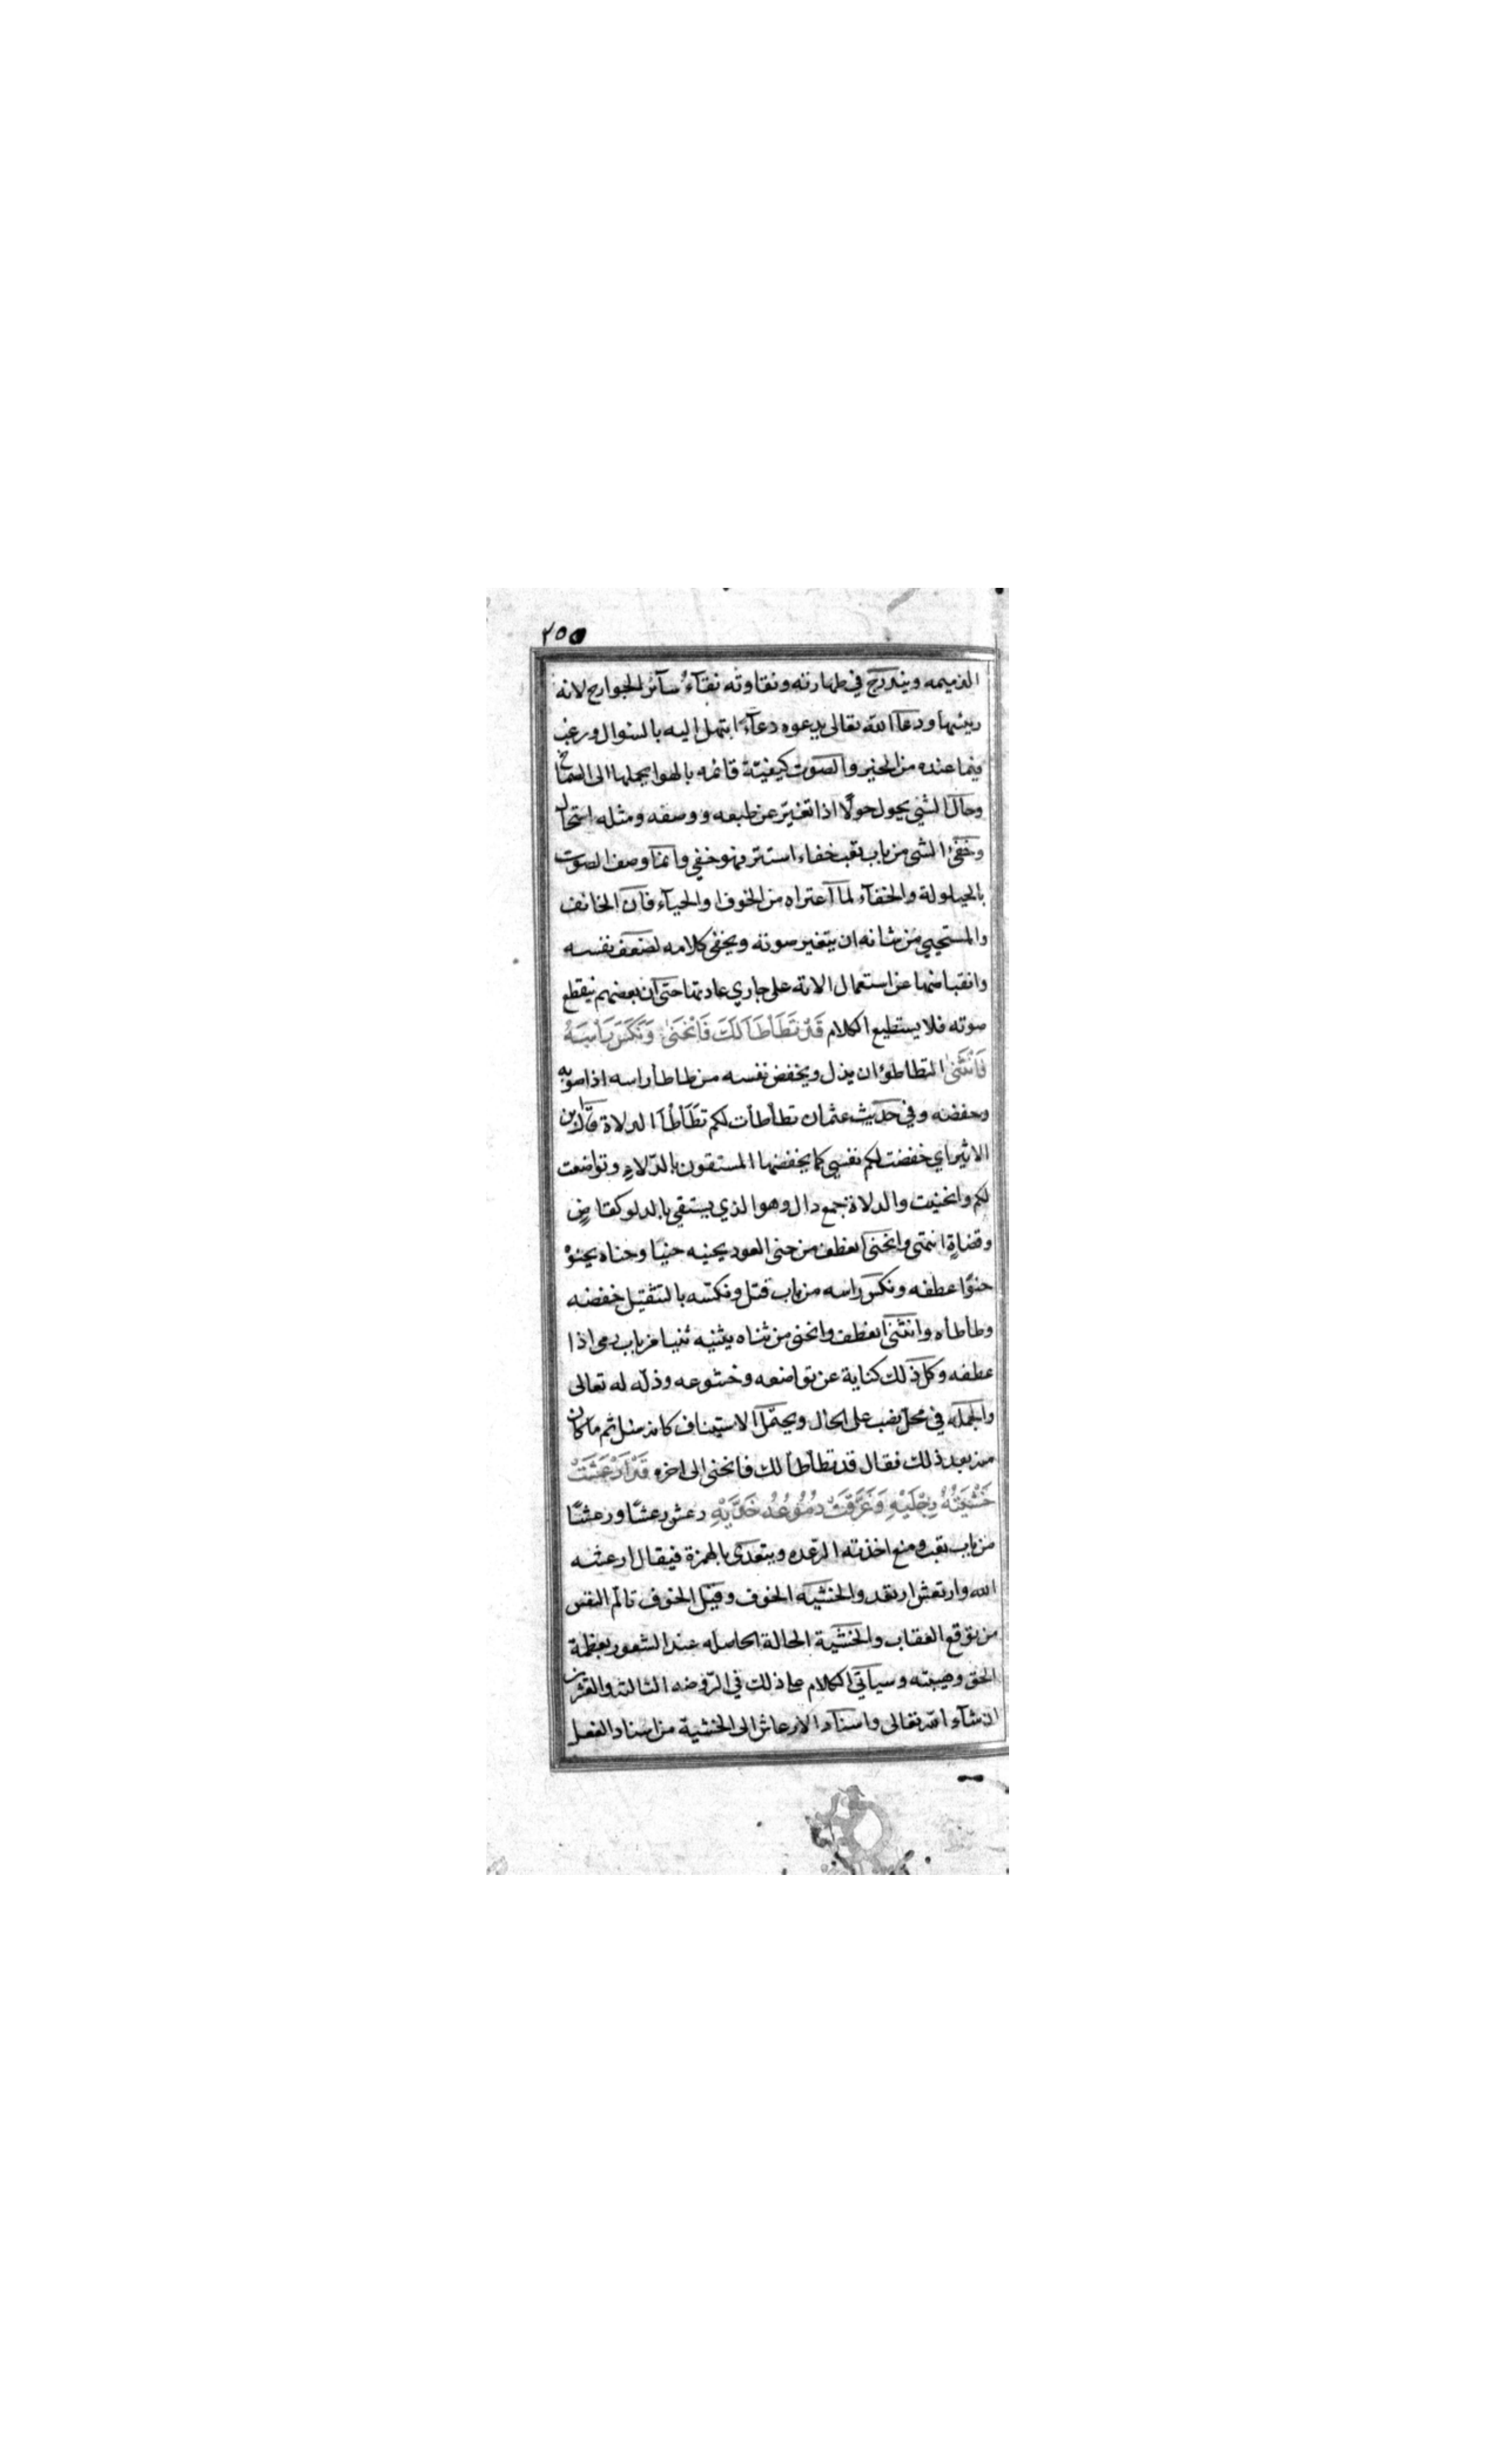 ٢٥٥
الذميمه ويندرج في طهارته ونقاوته نقآء سآئر الجوارح لانه
رئيسها ودعآ الله تعالى يدعوه دعآءً ابتهل اليه بالسوال ورغب
فيما عنده من الخير والصوت كيفيّة قائمه بالهوا يحملها الى الصماخ
وحال الشي يحول حولًا اذا تغيّر عن طبعه ووصفه ومثله استحال
وخفي الشي من باب تعب خفاء استتر فهو خفي وانما وصف الصوت
بالحيلولة والخفآء لما اعتراه من الخوف او الحيآء فان الخائف
والمستحيي من شانه ان يتغير صوته ويخفى كلامه لضعف نفسه
وانقباضها عن استعمال الالة على جاري عادتها حتى ان بعضهم ينقطع
صوته فلا يستطيع الكلام قَدْ تَطَأْطَأَ لَكَ فَانْحَنىٰ وَنَكَّسَ رَأْسَهُ
فَانْثَنىٰ التطاطؤ ان يذل ويخفض نفسه من طاطأ راسه اذا صوبه
وخفضه وفي حديث عثمان تطأطأت لكم تَطَأْطُأَ الدلاة قال ابن
الاثير اي خفضت لكم نفسي كما يخفضها المستقون بالدّلاء وتواضعت
لكم وانحنيت والدلاة جمع دال وهو الذي يستقي بالدلو كقاضٍ
وقضاةٍ انتهى وانحنى انعطف من حنى العود يحنيه حنيًا وحناه يحنوْ
حنوًا عطفه ونكس راسه من باب قتل ونكّسه بالتثقيل خفضه
وطأطأه وانثنى انعطف وانحنى من ثناه يثنيه ثنيا من باب رمى اذا
عطفه وكل ذلك كناية عن تواضعه وخشوعه وذلّه له تعالى
والجمله في محل نصب على الحال ويحتمل الاستيناف كانه سئل ثم ما كان
منه بعد ذلك فقال قد تطأطأ لك فانحنى الى اخره قَدْ اَرْعَشَتْ
خَشْيَتُهُ رِجْلَيْهِ وَغَرَّقَتْ دُمُوعُهُ خَدَّيْهِ رعش رعشًا ورعشًا
من باب تعب ومنع اخذته الرّعده ويتعدى بالهمزة فيقال ارعشه
الله وارتعش ارتعد والخشيه الخوف وقيل الخوف تالّم النفس
من توقع العقاب والخشية الحالة الحاصله عند الشعور بعظمة
الحق وهيبته وسيآتي الكلام على ذلك في الرّوضه الثالثه والعشرين
ان شآء الله تعالى واسنآد الارعاش الى الخشية من اسناد الفعل